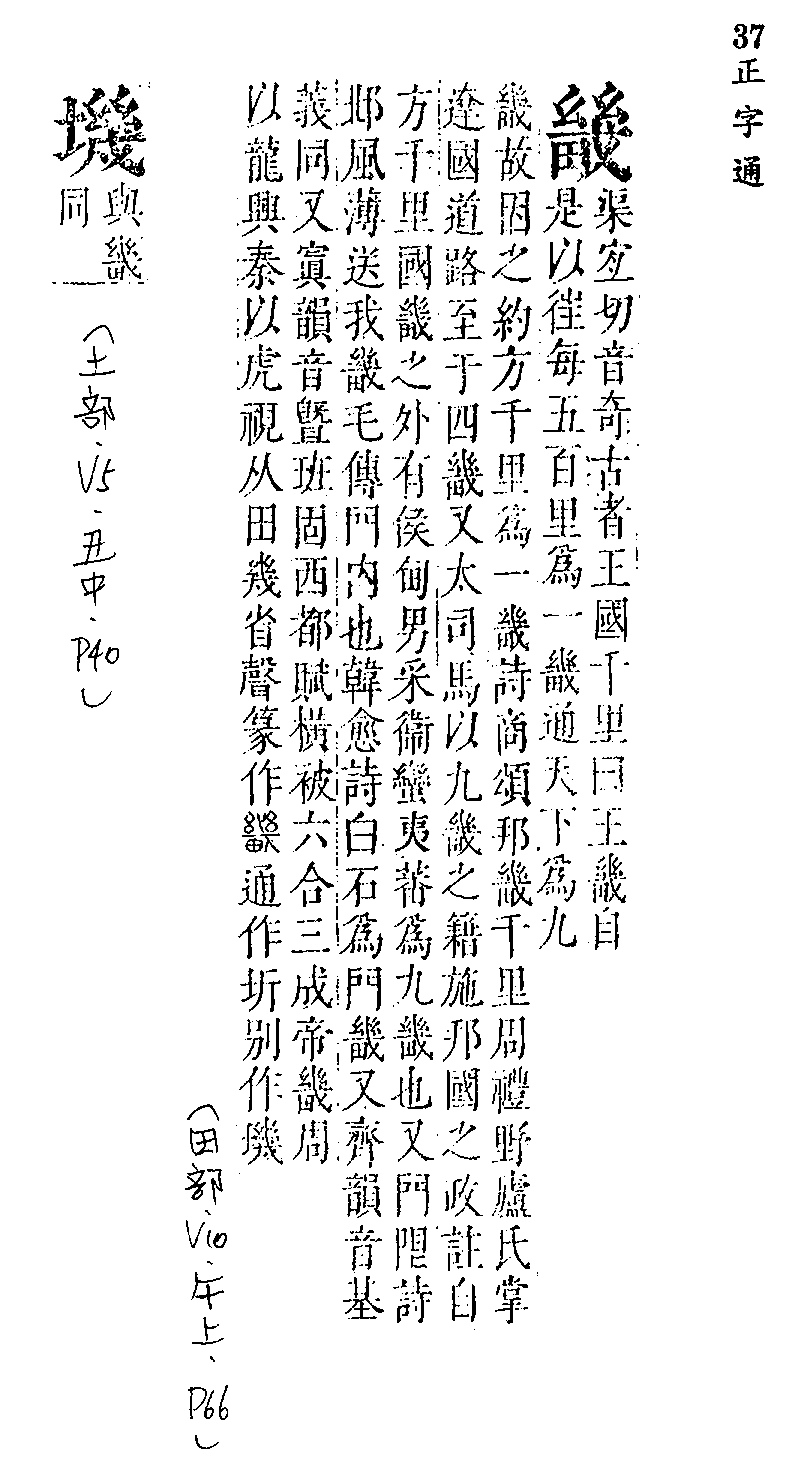 37 正字通
畿
渠宜切音奇古者王國千里曰王畿自
是以往每五百里爲一畿通天下爲九
畿故因之約方千里爲一畿詩商頌邦畿千里周禮野廬氏掌
達國道路至于四畿又大司馬以九畿之籍施邦國之政註自
方千里國畿之外有侯甸男采衞蠻夷蕃爲九畿也又門限詩
邶風薄送我畿毛傳門內也韓愈詩白石爲門畿又齊韻音基
義同又寘韻音曁班固西都賦橫被六合三成帝畿周
以龍興秦以虎視从田幾省聲篆作畿通作圻别作璣
(田部、V10、午上、P66)
㙨
與畿
同
(土部、V5、丑中、P40)